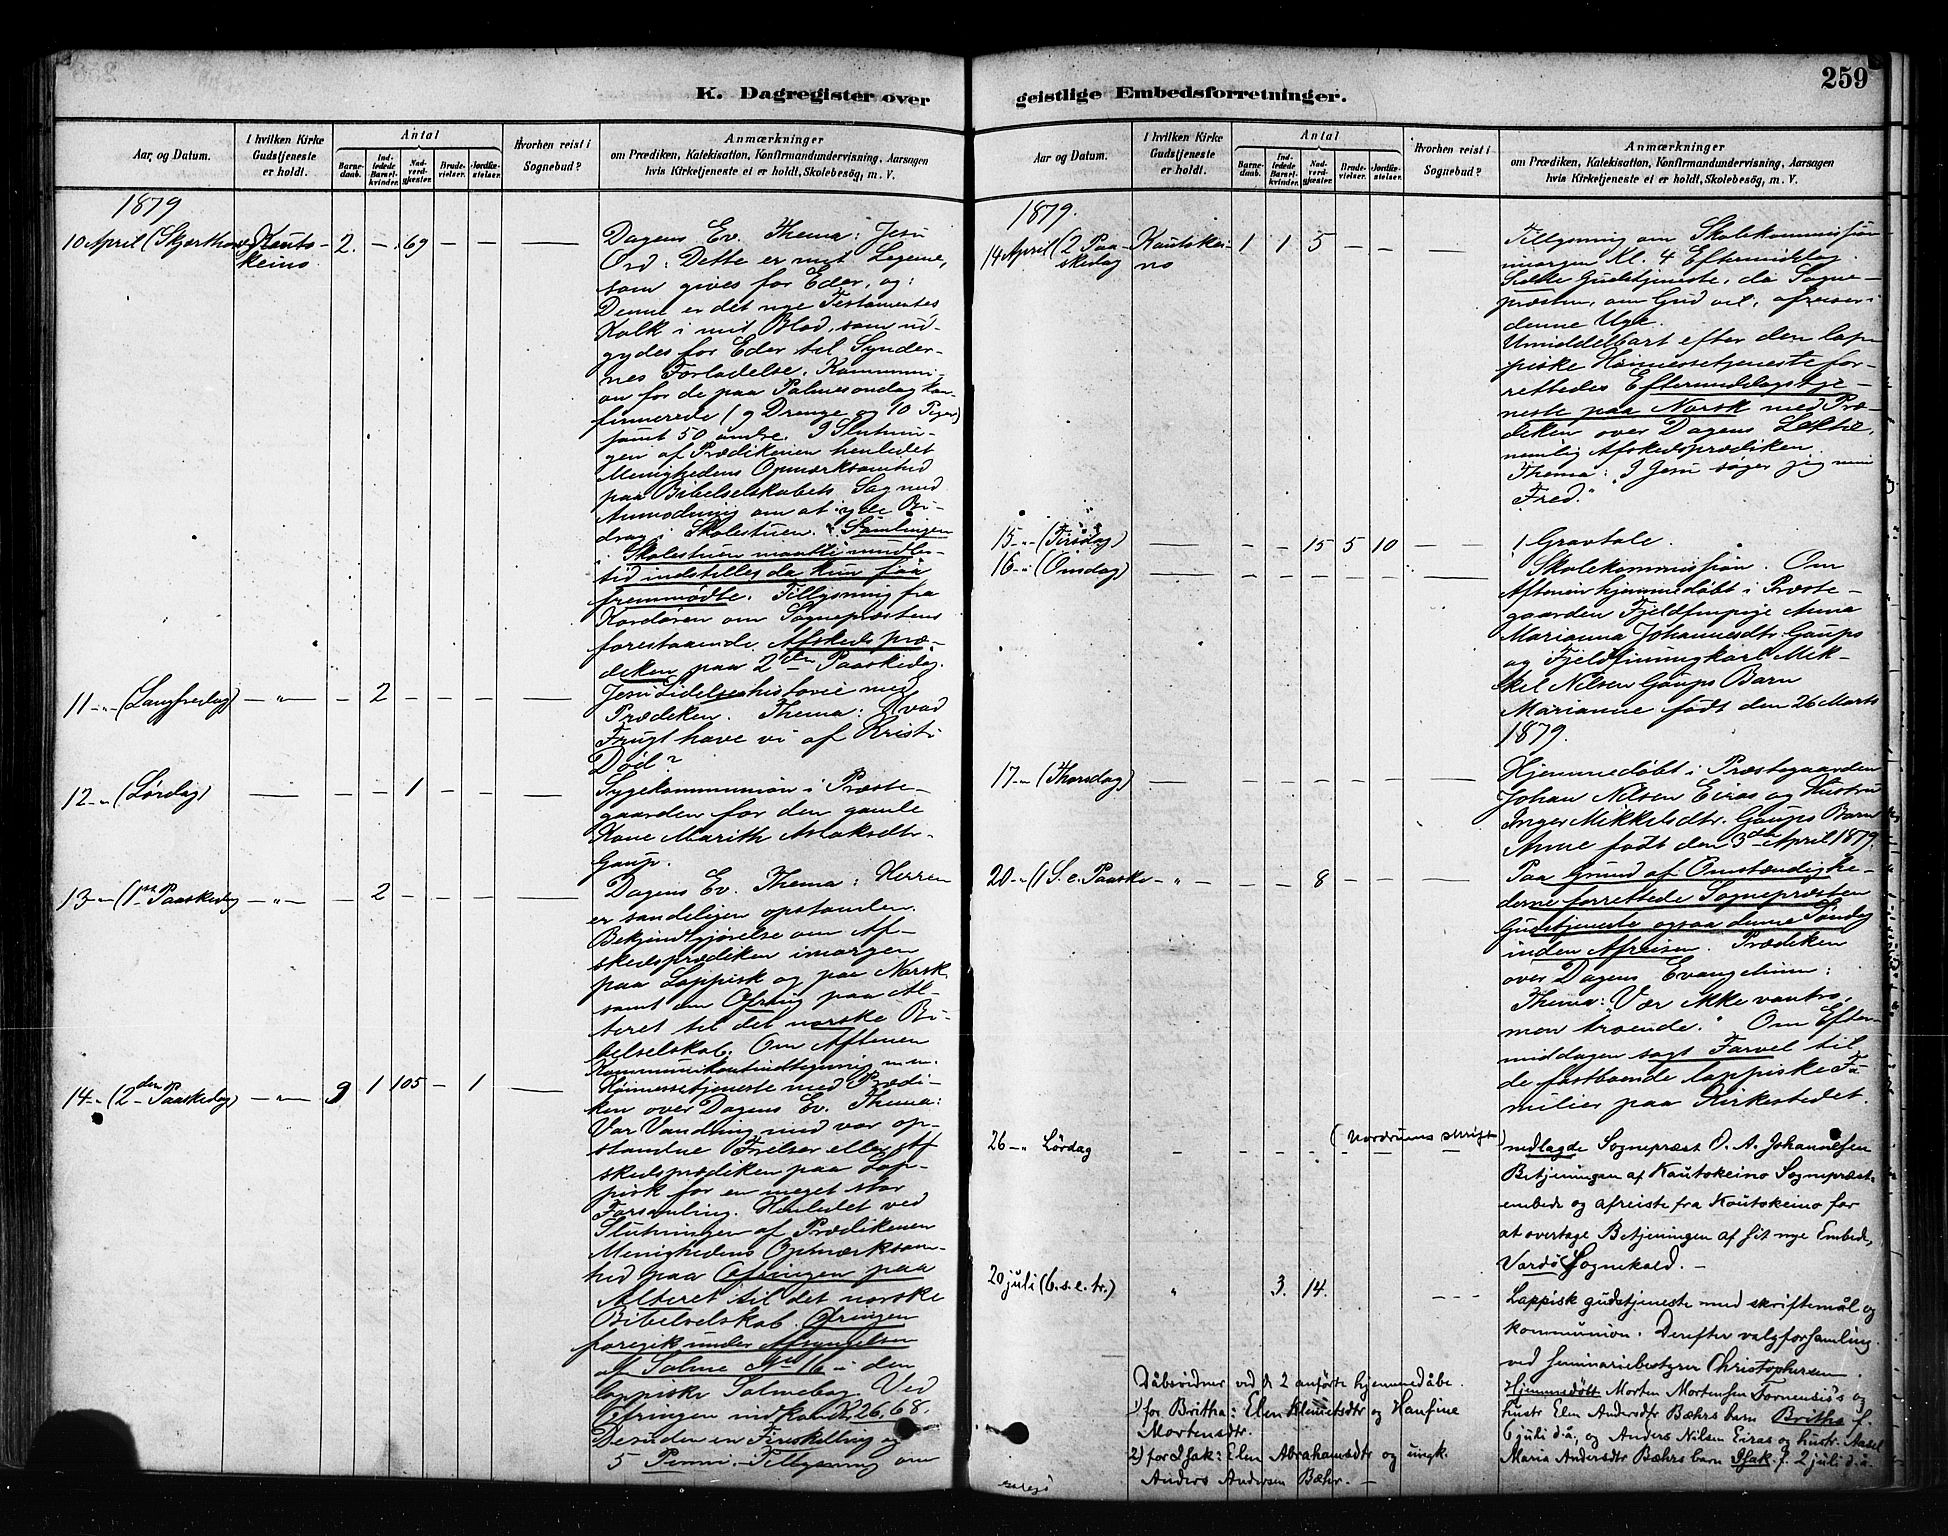 259
K. Dagregister over
geistlige Embedsforretninger.
Aar, og Datum.
I hvilken Kirke Gudstjeneste er holdt.
Antal
Barne-daab.
Ind-ledede Barsel-kvinder.
Nad-verd-gjester.
Brude-vielser.
Jordfæ-stelser.
Hvorhen reist i Sognebud?
Anmærkninger
om Prædiken, Katekisation, Konfirmandundervisning, Aarsagen
hvis Kirketjeneste ei er holdt, Skolebesög, m. V.
1879
10 April (Skjærthorsd. Kauto- 2. - 69 - - — Dagens Ev. Thema: Jesu
keino. Ord: Dette er mit Legeme,
som gives for Eder, og:
Denne er det nye Testamentes
Kalk i mit Blod, som ud-
gydes for Eder til Synder-
nes Forladelse. Kommuni-
on for de paa Palmesöndag kon-
firmerede (9 Drenge og 10 Piger)
samt 50 andre. I Slutnin-
gen af Prædikenen henledet
Menighedens Opmærksomhed
paa Bibelselskabets Sag med
Anmodning om at yde Bi-
drag i Skolestuen. Samlingen
i Skolestuen maatte imidler-
tid indstilles da kun faa
fremmødte. Tillysning fra
Kordören om Sognepræstens
forestaaende Afskedspræ-
deken paa 2den Paaskedag.
11 -"- (Langfredag) — " — - 2 - - - — Jesu Lidelseshistorie med
Prædeken. Thema: Hvad
Frugt have vi af Kristi
Död?
12 -"- (Lördag) — - - 1 - - — Sygekommunion i Præste-
gaarden for den gamle
Kone Marith Aslaksdtr.
Gaup.
13 -"- (1ste Paaskedag — " — - 2 - - - — Dagens Ev. Thema: Herren
er sandeligen opstanden.
Bekjendtgjörelse om Af-
skedsprædiken imorgen
paa Lappisk og paa Norsk
samt om Ofring paa Al-
teret til det norske Bi-
belselskab. Om Aftenen
Kommunikantindtegning m.m.
14 -"- (2den Paaskedag) — " — 9 1 105 - 1 — Höimessetjeneste med Prædi-
ken over Dagens Ev. Thema:
Vor Vandring med vor op-
standne Frelser eller Af-
skedsprædiken paa Lap-
pisk for en meget stor
Forsamling. Henledet ved
Slutningen af Prædikenen
Menighedens Opmærksom-
hed paa Ofringen paa
Alteret til det norske
Bibelselskab. Ofringen
foregik under Afsyngelsen
af Salme No 16 i den
lappiske Salmebog. Ved
Ofringen indkom Kr 26,68.
Desuden en Fireskilling og
5 Penni. Tillysning om
Aar og Datum.
I hvilken Kirke Gudstjeneste er holdt.
Antal
Barne-daab.
Ind-ledede Barsel-kvinder.
Nad-verd-gjester.
Brude-vielser.
Jordfæ-stelser.
Hvorhen reist i Sognebud?
Anmærkninger
om Prædiken, Katekisation, Konfirmandundervisning, Aarsagen
hvis Kirketjeneste ei er holdt, Skolebesög, m. V.
1879.
14 April (2 Paa- Kautokei- 1 1 5 - - — Tillysning om Skolekommission
skedag no imorgen Kl. 4 Eftermiddag.
Sidste Gudstjeneste, da Sogne-
præsten, om Gud vil, afreiser i
denne Uge.
Umiddelbart efter den lap-
piske Höimessetjeneste for-
rettedes Eftermiddagstje-
neste paa Norsk med Præ-
deken over Dagens Lektie,
nemlig Afskedsprædiken.
Thema: "I Jesu söger jeg min
Fred."
15 -"- (Tirsdag) — - - 15 5 10 — 1 Gravtale.
16 -"- (Onsdag) — - - - - - — Skolekommission. Om
Aftenen hjemmedöbt i Præste-
gaarden Fjeldfinpige Anna
Marianna Johannesdtr Gaups
og Fjeldfinungkarl Mik-
kel Nilsen Gaups Barn
Marianne födt den 26 Marts
1879.
17 -"- (Thorsdag) — - - - - - — Hjemmedöbt i Præstegaarden
Johan Nilsen Eiras og Hustru
Inger Mikkelsdtr. Gaups Barn
Anne födt den 3die April 1879.
20 -"- (1 S. e. Paaske - " — - - 8 - - — Paa Grund af Omstændighe-
derne forrettede Sognepræsten
Gudstjeneste ogsaa denne Söndag
inden Afreisen. Prædeken
over Dagens Evangelium:
Thema: Vær ikke vantro,
men troende." Om Efter-
middagen sagt Farvel til
de fastboende lappiske Fa-
milier paa Kirkestedet.
(Nordrums skrift)
26 -"- Lördag - - - - - - - nedlagde Sognepræst O. A. Johannessen
Betjeningen af Kautokeino Sognepræst-
embede og afreiste fra Kautokeino for
at overtage Betjeningen af sit nye Embede,
Vardö Sognekald. -
20 juli (6. s. e. tr.) " 3. 14. - - - Lappisk gudstjeneste med skriftemål og
kommunion. Derefter valgforsamling
ved seminariebestyrer Christophersen.
Hjemmedöbt Morten Mortensen Fornensis's og
hustr Elen Andersdtr Bæhrs barn Britha f.
6 juli d. å. og Anders Nilsen Eiras og hustr. Aasel
Maria Andersdtr Bæhrs barn Isak f. 2 juli d. å.
Dåbsvidner ved de 2 anförte hjemmedåbe.
1) for Britha: Elen Klemetsdtr og Hansine
Mortensdtr.
2) for Isak: Elen Abrahamsdtr og ungk.
Anders Andersen Bæhr. -